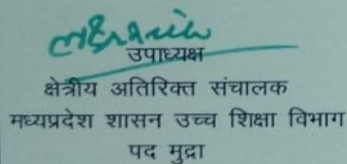 उपाध्यक्ष
क्षेत्रीय अतिरिक्त संचालक
मध्यप्रदेश शासन उच्च शिक्षा विभाग
पद मुद्रा